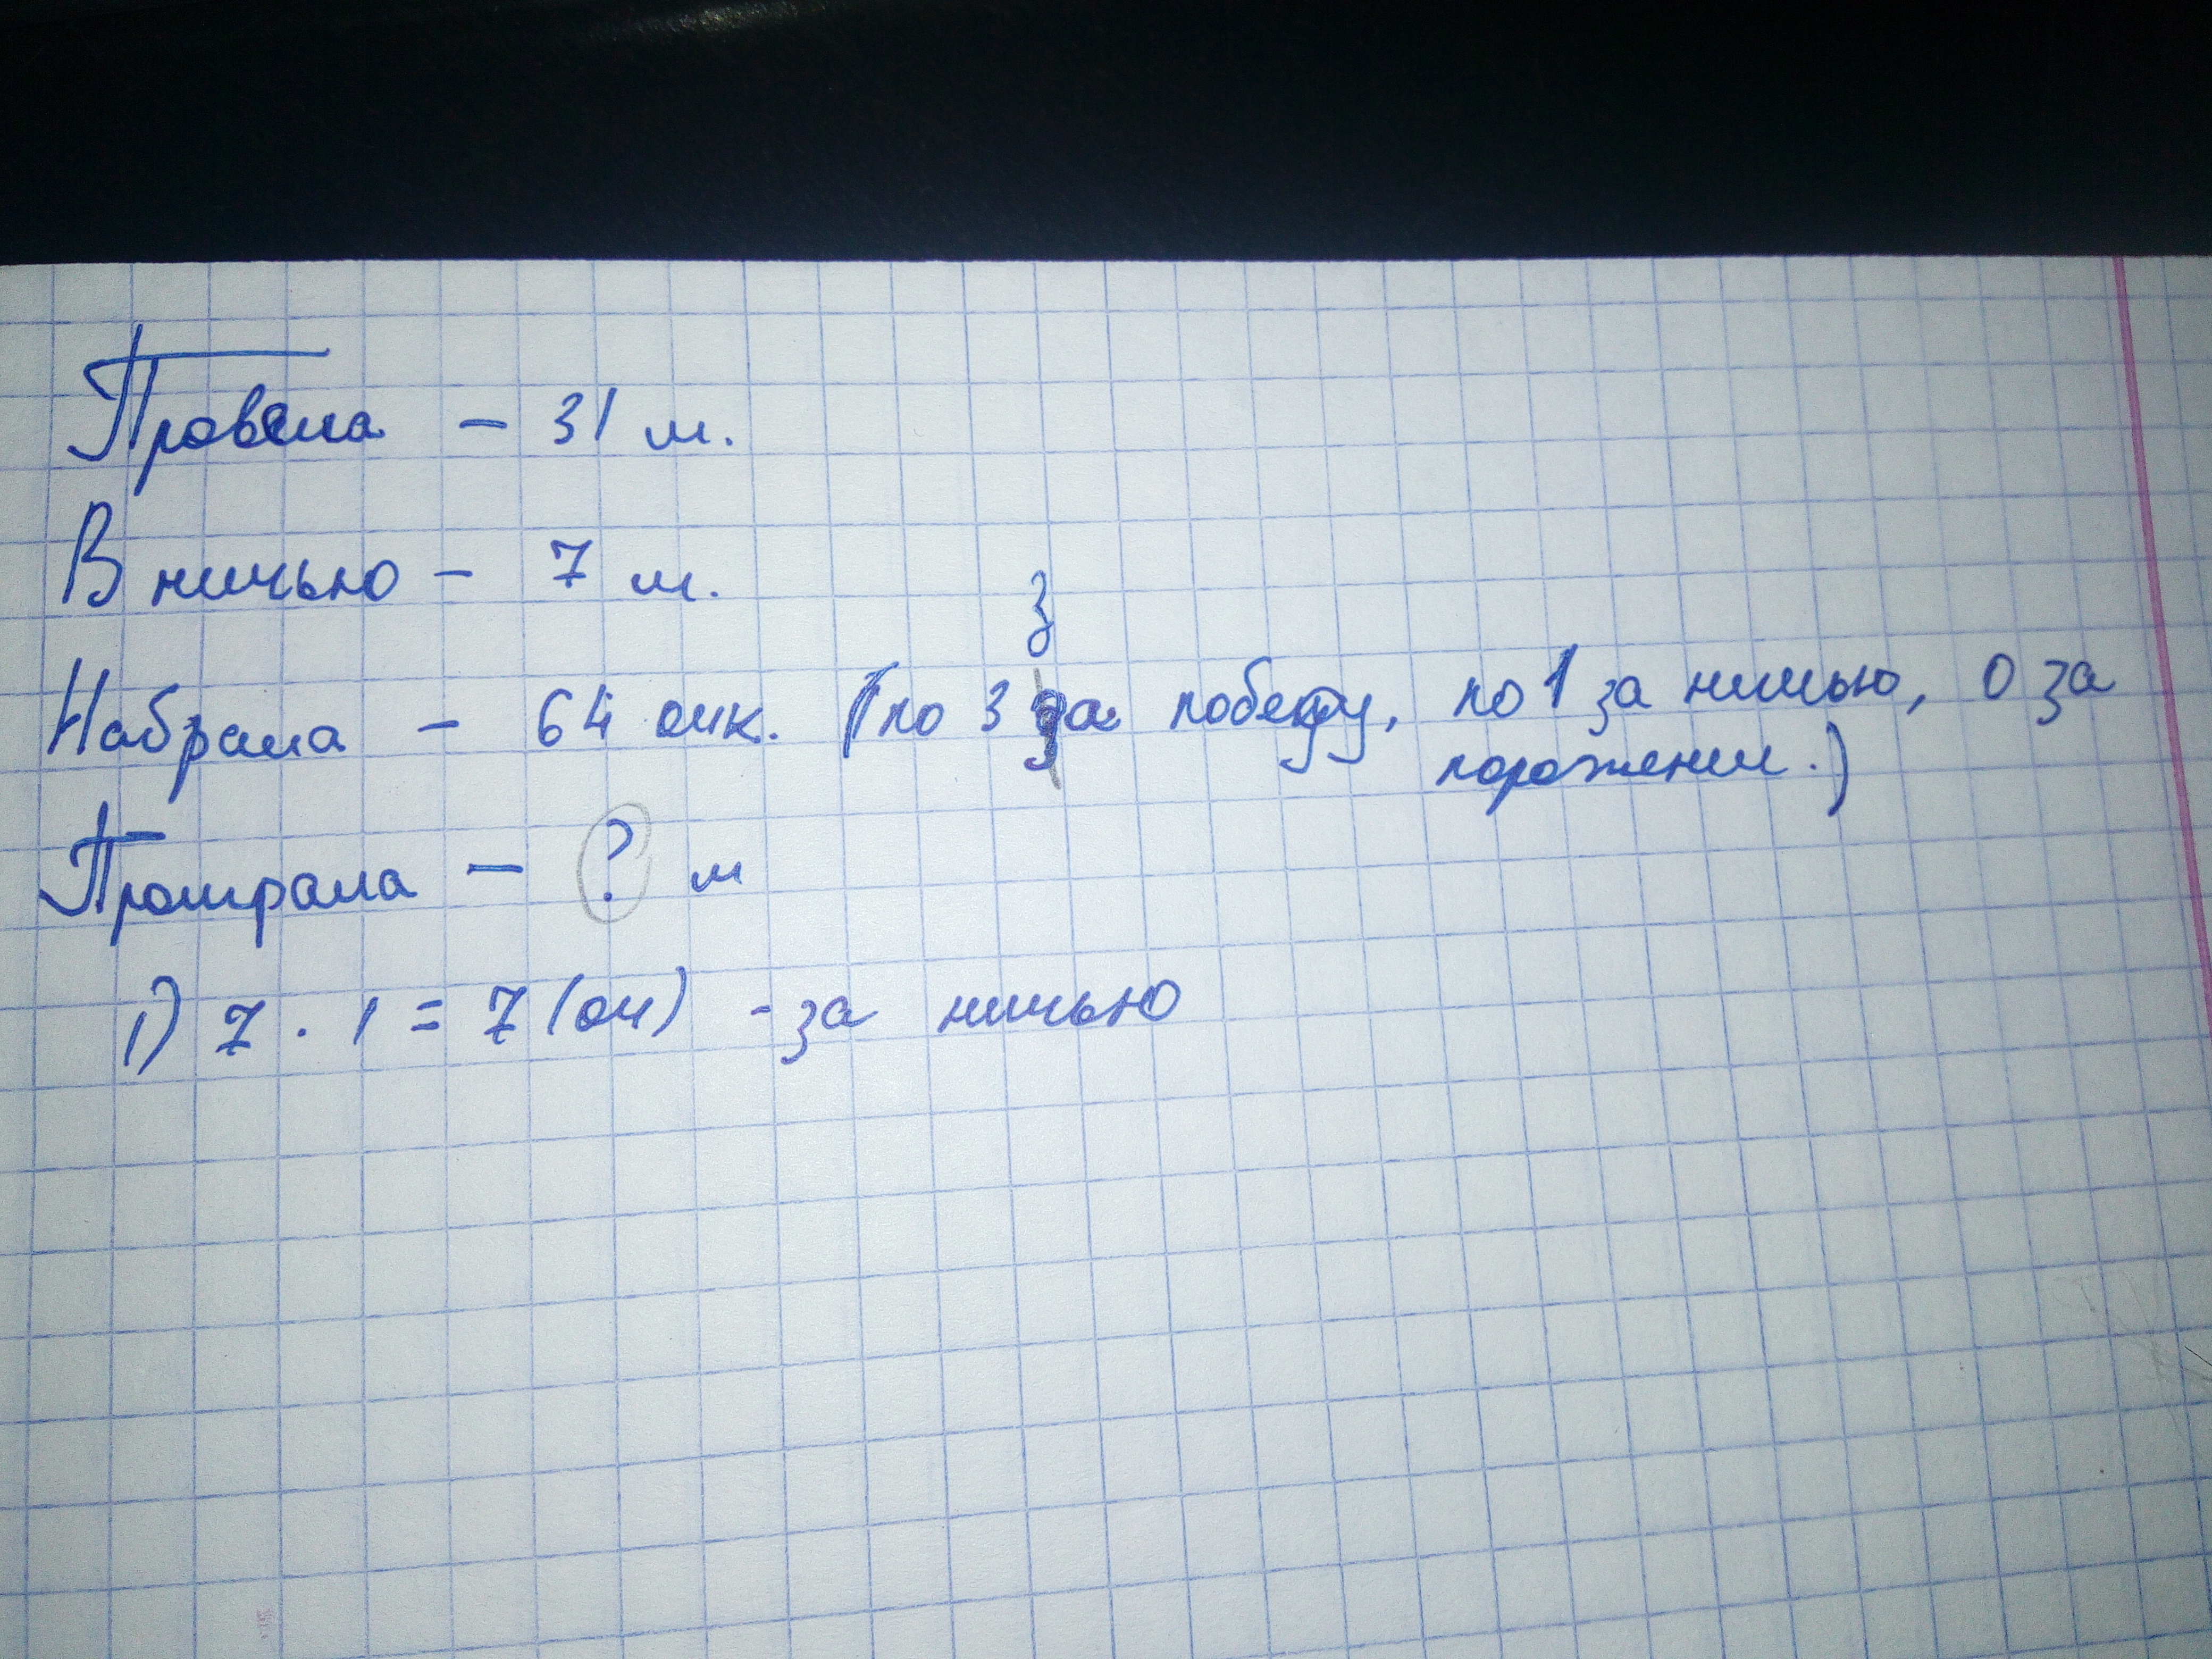 Провела – 31 м.
В ничью – 7 м.
з
Набрала – 64 очк. (по 3 за победу, по 1 за ничью, 0 за
поражении.)
Проиграла – ? м
1) 7 · 1 = 7 (оч) - за ничью